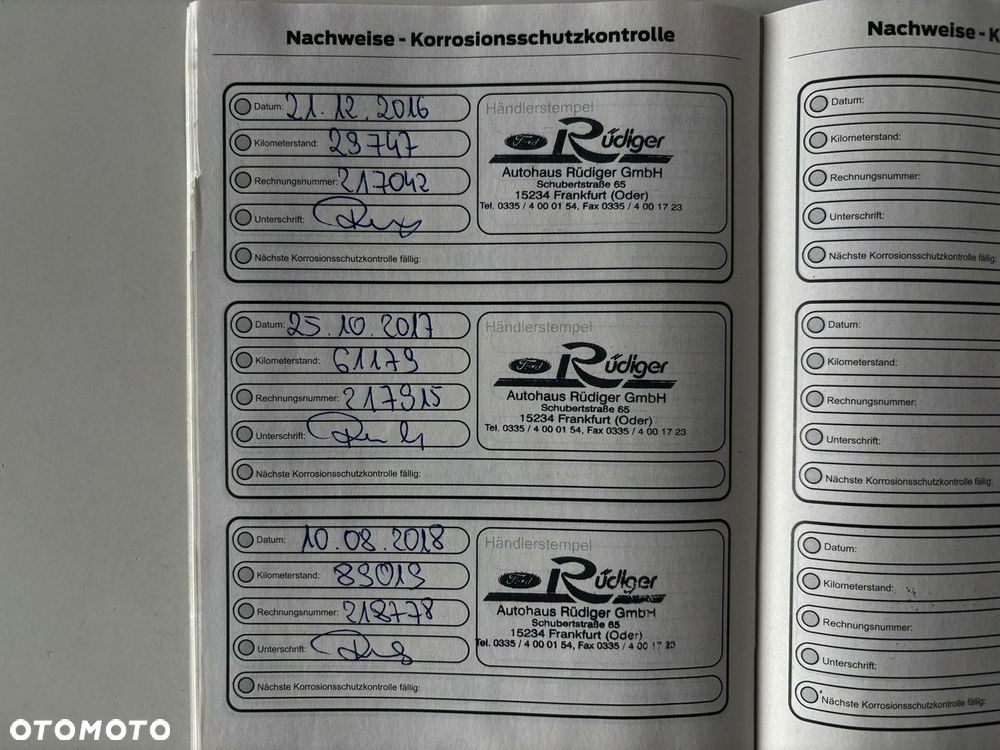 Nachweise - Korrosionsschutzkontrolle
Datum: 21.12.2016
Kilometerstand: 29747
Rechnungsnummer: 217042
Unterschrift:
Nächste Korrosionsschutzkontrolle fällig:
Händlerstempel
Ford Rüdiger
Autohaus Rüdiger GmbH
Schubertstraße 65
15234 Frankfurt (Oder)
Tel. 0335 / 4 00 01 54, Fax 0335 / 4 00 17 23
Datum: 25.10.2017
Kilometerstand: 61179
Rechnungsnummer: 217915
Unterschrift:
Nächste Korrosionsschutzkontrolle fällig:
Händlerstempel
Ford Rüdiger
Autohaus Rüdiger GmbH
Schubertstraße 65
15234 Frankfurt (Oder)
Tel. 0335 / 4 00 01 54, Fax 0335 / 4 00 17 23
Datum: 10.08.2018
Kilometerstand: 89019
Rechnungsnummer: 218778
Unterschrift:
Nächste Korrosionsschutzkontrolle fällig:
Händlerstempel
Ford Rüdiger
Autohaus Rüdiger GmbH
Schubertstraße 65
15234 Frankfurt (Oder)
Tel. 0335 / 4 00 01 54, Fax 0335 / 4 00 17 23
Nachweise - K
Datum:
Kilometerstand:
Rechnungsnummer:
Unterschrift:
Nächste Korrosionsschutzkontrolle fällig:
Datum:
Kilometerstand:
Rechnungsnummer:
Unterschrift:
Nächste Korrosionsschutzkontrolle fällig:
Datum:
Kilometerstand:
Rechnungsnummer:
Unterschrift:
Nächste Korrosionsschutzkontrolle fällig:
OTOMOTO